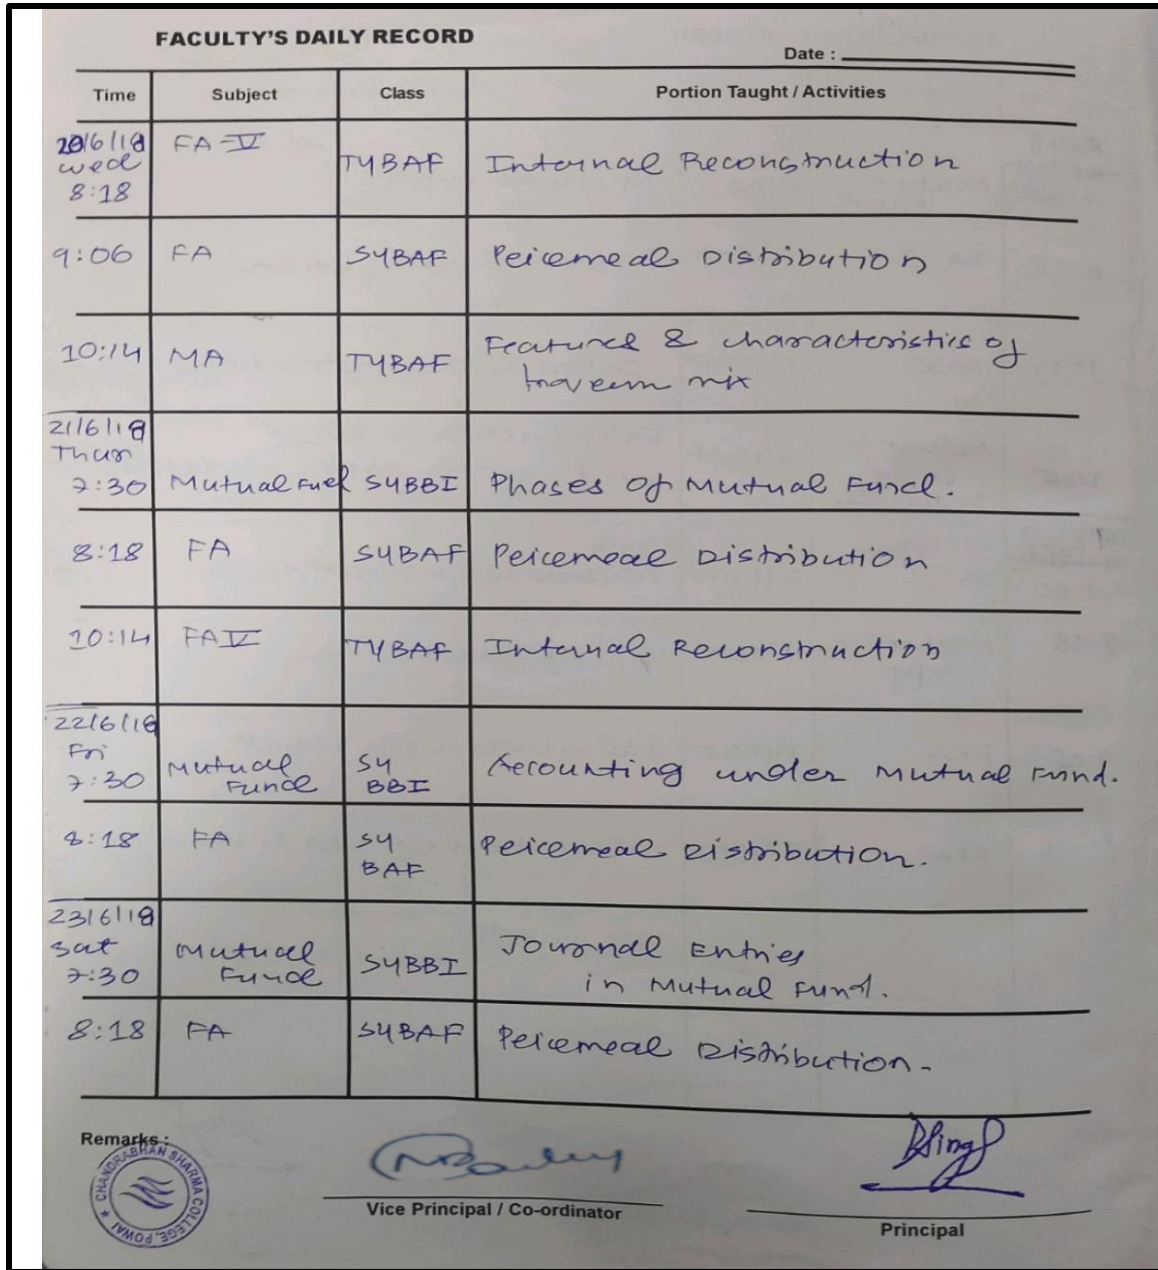 FACULTY'S DAILY RECORD
Date :
Time Subject Class Portion Taught / Activities
20/6/18
wed
8:18 FA-V TYBAF Internal Reconstruction
9:06 FA SYBAF Peicemeal Distribution
10:14 MA TYBAF Features & characteristics of
mix
21/6/18
Thur
7:30 Mutual Fuel SYBBI Phases of Mutual Fund.
8:18 FA SYBAF Peicemeal Distribution
10:14 FA V TYBAF Internal Reconstruction
22/6/18
Fri
7:30 Mutual Fund SY BBI Accounting under Mutual Fund.
8:18 FA SY BAF Peicemeal Distribution.
23/6/18
Sat
7:30 Mutual Fund SYBBI Journal Entries
in Mutual Fund.
8:18 FA SYBAF Peicemeal Distribution.
Remarks :
CHANDRABHAN SHARMA COLLEGE, POWAI
Vice Principal / Co-ordinator
Principal